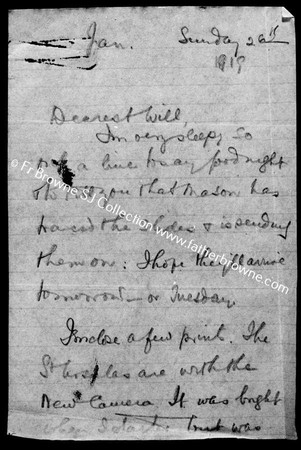 Jan. Sunday 26th
1919
Dearest Will,
I'm very sleepy so
a line to say goodnight
you that Mason has
traced the slides & is sending
them on: I hope they'll arrive
tomorrow or Tuesday.
I enclose a few prints. The
are with the
New Camera. It was bright
when I but was
© Fr Browne SJ Collection www.fatherbrowne.com